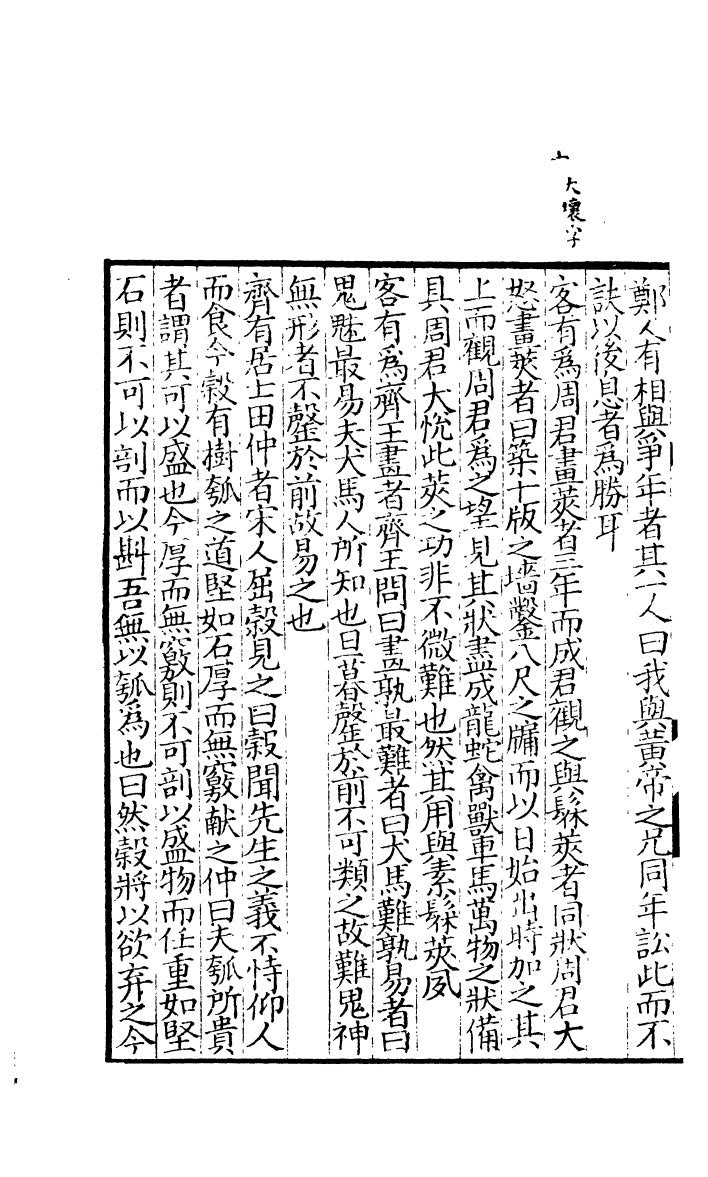 上
大壞字
鄭人有相與爭年者其一人曰我與黄帝之兄同年訟此而不
訣以後息者爲勝耳
客有爲周君畫莢者三年而成君觀之與髹莢者同狀周君大
怒畫莢者曰築十版之墻鑿八尺之牖而以日始出時加之其
上而觀周君爲之望見其狀盡成龍蛇禽獸車馬萬物之狀備
具周君大悅此莢之功非不微難也然其用與素髹莢同
客有爲齊王畫者齊王問曰畫孰最難者曰犬馬難孰易者曰
鬼魅最易夫犬馬人所知也旦暮罄於前不可類之故難鬼神
無形者不罄於前故易之也
齊有居士田仲者宋人屈穀見之曰穀聞先生之義不恃仰人
而食今穀有樹瓠之道堅如石厚而無竅獻之仲曰夫瓠所貴
者謂其可以盛也今厚而無竅則不可剖以盛物而任重如堅
石則不可以剖而以斟吾無以瓠爲也曰然穀將以欲弃之今